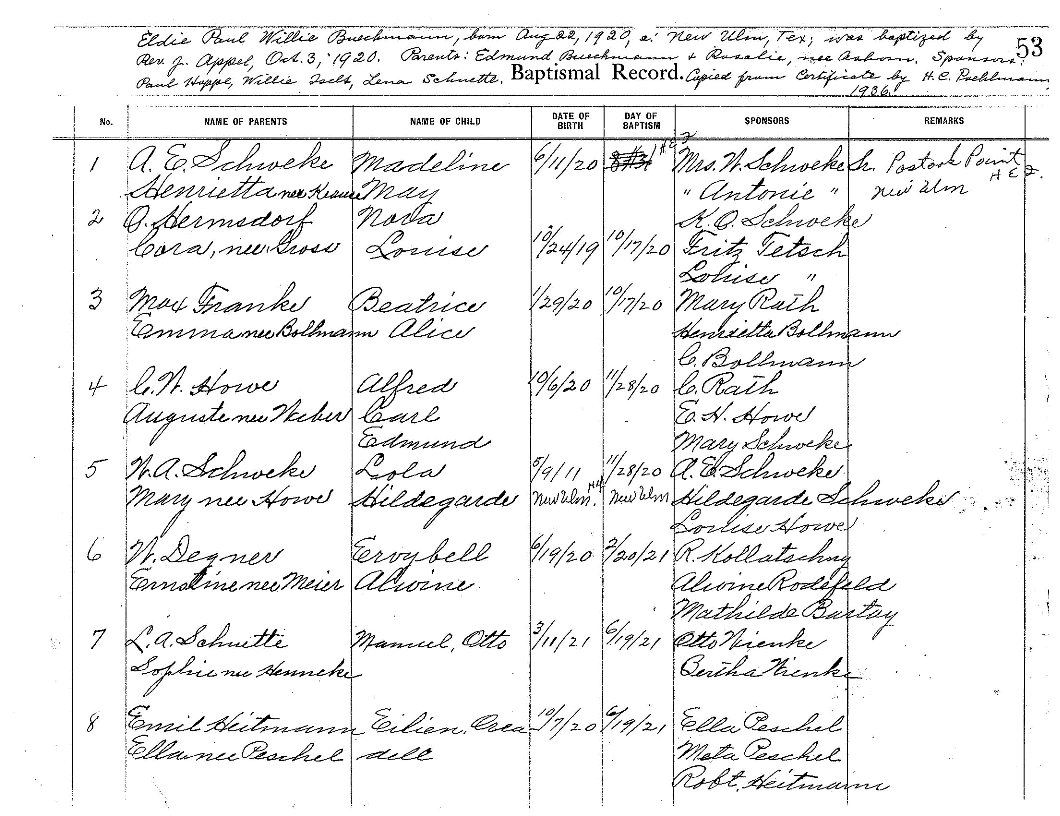 Eldie Paul Willie Bueckmann, born Aug 22, 1920, at New Ulm, Tex; was baptized by
Rev. J. Appel, Oct. 3, 1920. Parents: Edmund Bueckmann & Rosalie, nee Ashorn. Sponsors:
Paul Hoppe, Willie Lena Schuette. Copied from Certificate by H. C. Poehlmann
1936.
53
Baptismal Record.
No. NAME OF PARENTS NAME OF CHILD DATE OF BIRTH DAY OF BAPTISM SPONSORS REMARKS
1 A. E. Schweke Madeline 6/11/20 Mrs. W. Schweke Sr. Postoak Point
Henrietta nee Krause May " Antonie " New Ulm
2 O. Hermsdorf Nova K. O. Schweke
Cora, nee Grose Louise 10/24/19 10/17/20 Fritz Tetsch
Louise "
3 Max Franke Beatrice 1/29/20 10/17/20 Mary Rath
Emma nee Bollmann Alice Henrietta Bollmann
C. Bollmann
4 C. W. Howe Alfred 10/6/20 11/28/20 C. Rath
Auguste nee Weber Carl E. H. Howe
Edmund Mary Schweke
5 W. A. Schweke Lola 5/9/11 11/28/20 A. E. Schweke
Mary nee Howe Hildegarde New Ulm New Ulm Hildegarde Schweke
Louise Howe
6 W. Degner Ervybell 6/19/20 2/20/21 R. Kollatschny
Ernstine nee Meier Alwine Alwine Rodefeld
Mathilde Bartay
7 L. A. Schuette Manuel, Otto 3/11/21 6/19/21 Otto Wienke
Sophie nee Henneke Bertha Wienke
8 Emil Heitmann Eilien, 10/7/20 6/19/21 Ella Peschel
Ella nee Peschel dell Meta Peschel
Robt. Heitmann